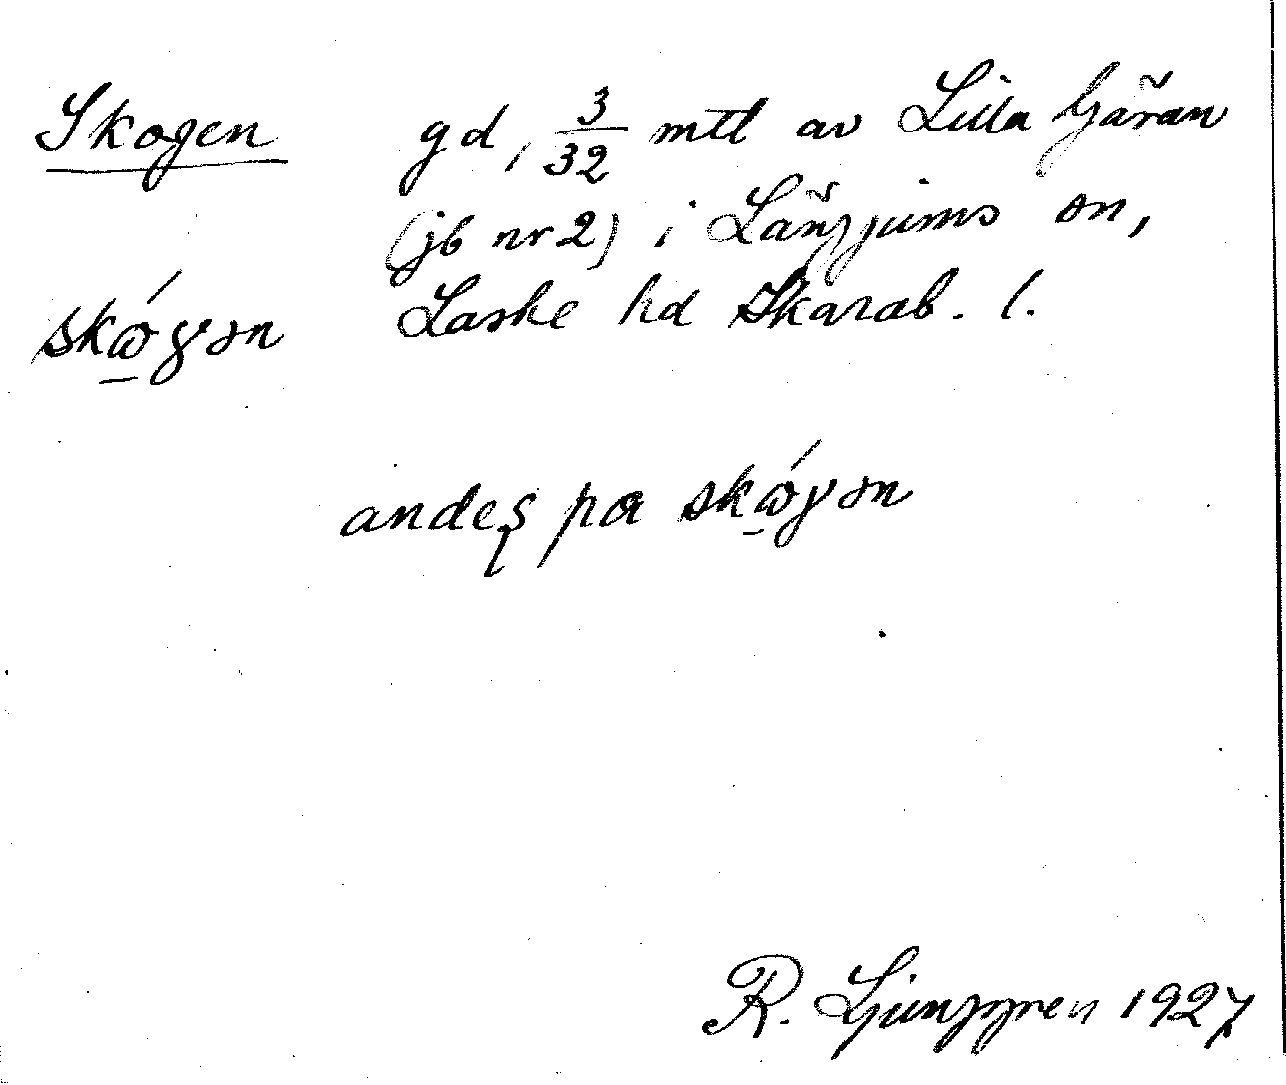 Skogen gd, 3/32 mtl av Lilla Gäran
(jb nr 2) i Längjums sn,
skώγən Laske hd Skarab. l.
andeʂ pa skώγən
R. Ljunggren 1927